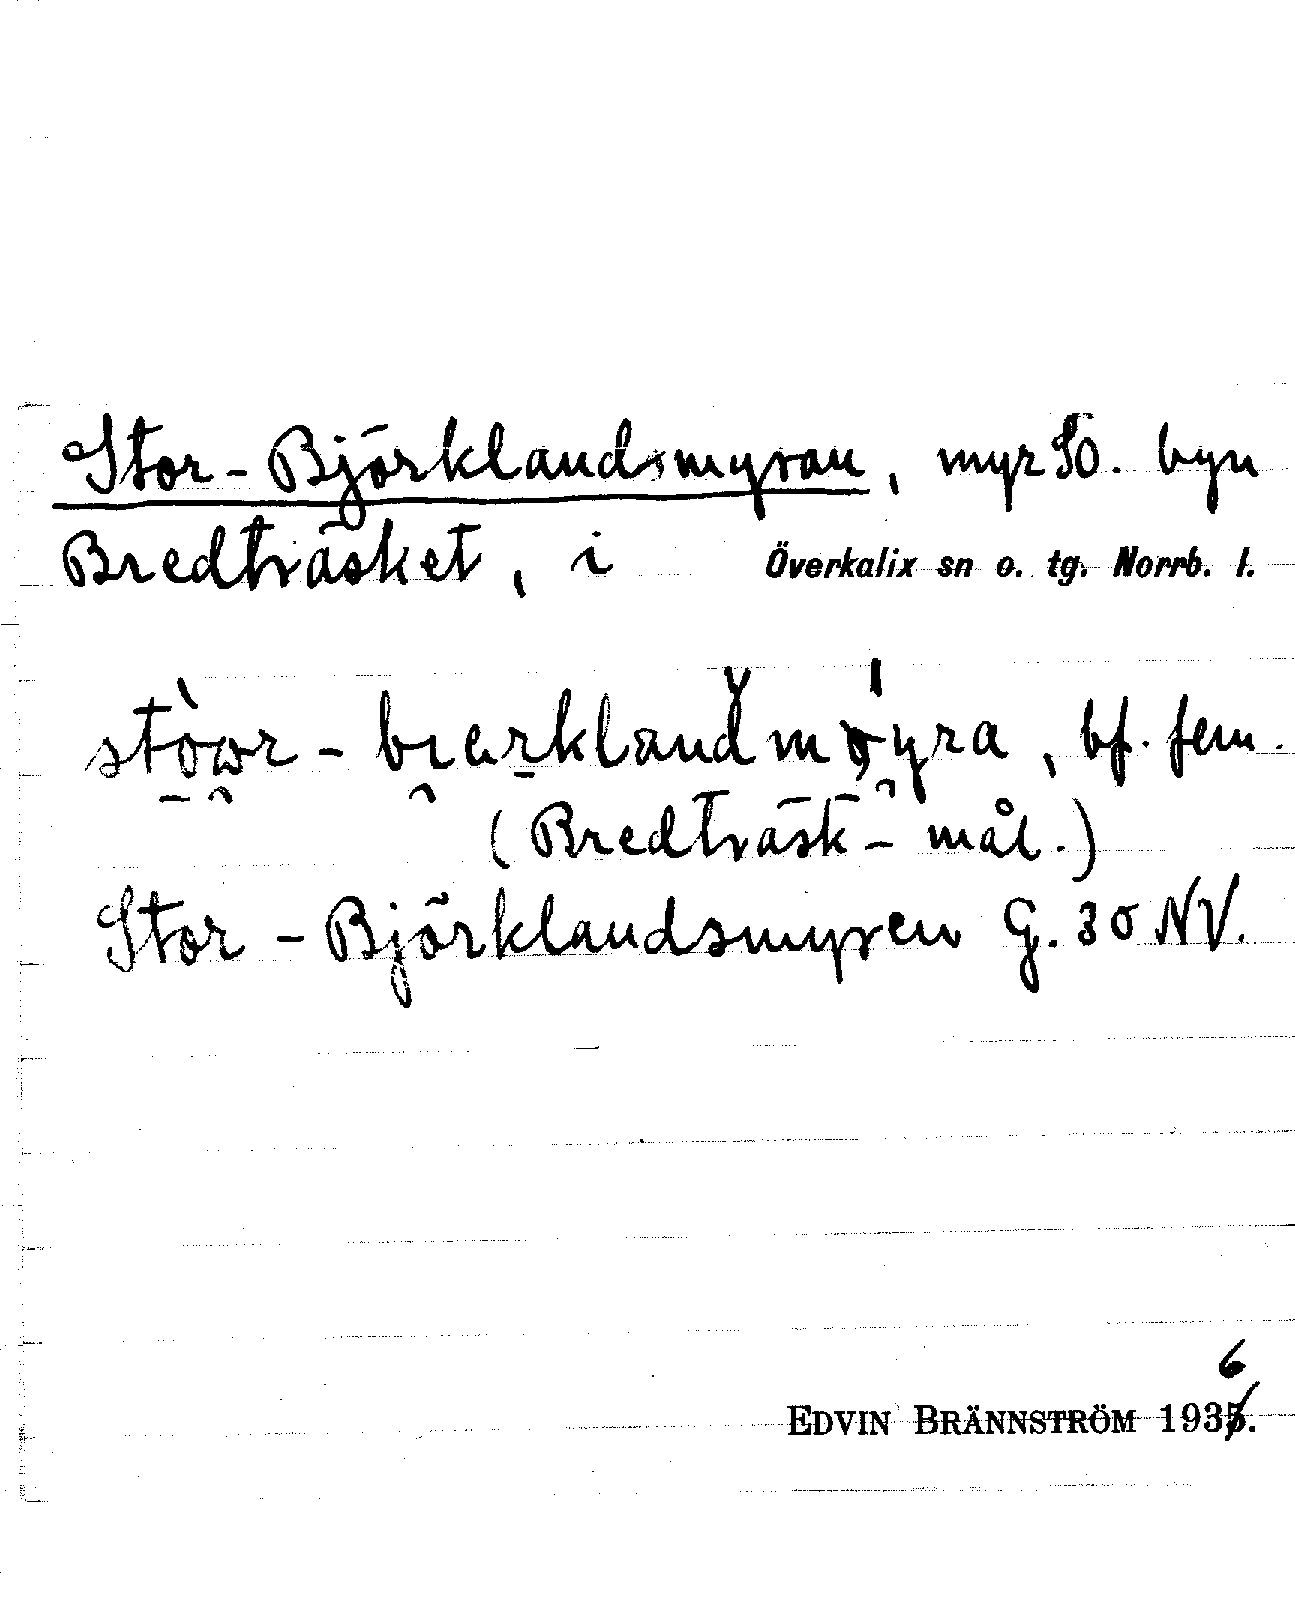 Stor-Björklandsmyran, myr SO. byn
Bredträsket, i Överkalix sn o. tg. Norrb. l.
bf. fem.
(Bredträsk-mål.)
Stor-Björklandsmyren G. 30 NV.
6
EDVIN BRÄNNSTRÖM 1935.